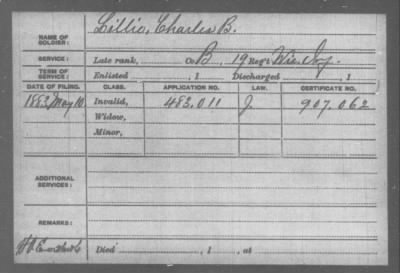 NAME OF SOLDIER: Lillie, Charles B.
SERVICE: Late rank, Co B, 19 Reg't Wis. Inf.
TERM OF SERVICE: Enlisted , 1 Discharged , 1
DATE OF FILING. CLASS. APPLICATION NO. LAW. CERTIFICATE NO.
1883, May 10. Invalid, 483.011 J 907.062
Widow,
Minor,
ADDITIONAL SERVICES:
REMARKS:
Died , 1 , at